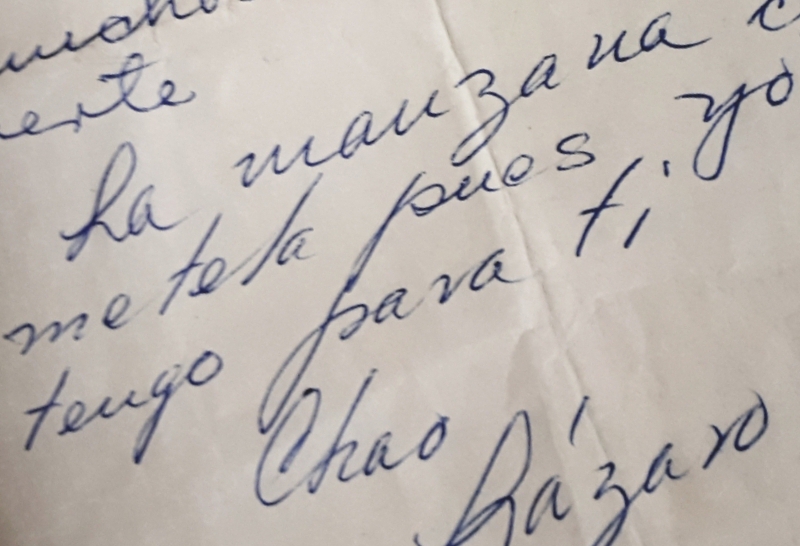 La manzana
metela pues yo
tengo para ti
Chao
Lázaro